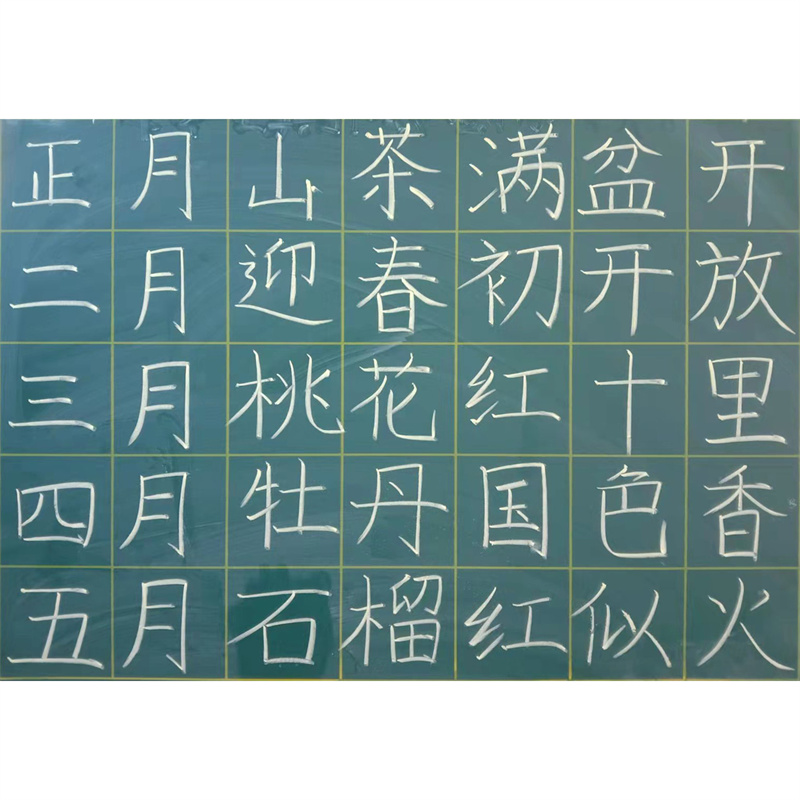 正月山茶满盆开
二月迎春初开放
三月桃花红十里
四月牡丹国色香
五月石榴红似火